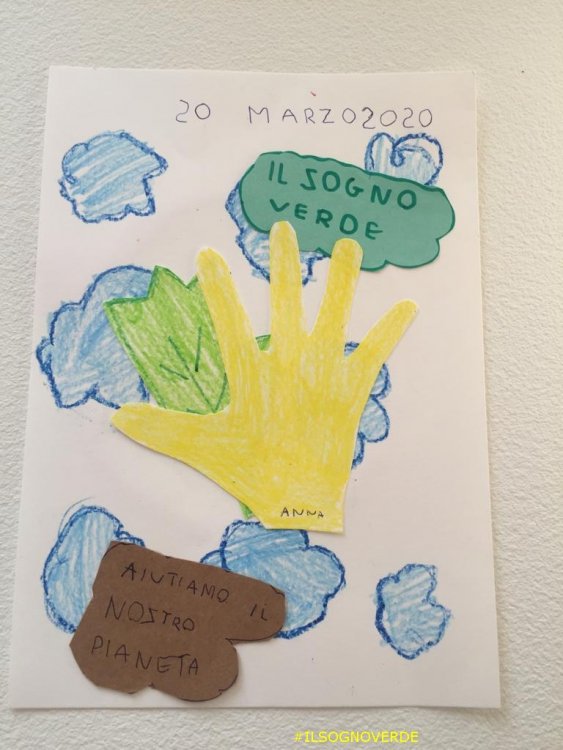 20 MARZO2020
IL SOGNO
VERDE
ANNA
AIUTIAMO IL
NOSTRO
PIANETA
#ILSOGNOVERDE